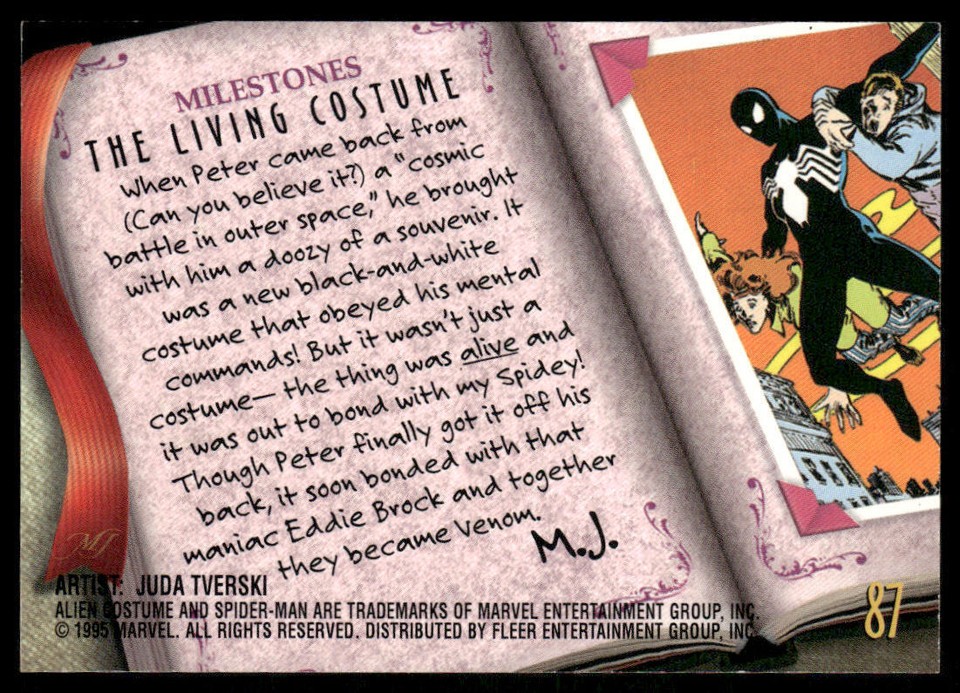 MILESTONES
THE LIVING COSTUME
When Peter came back from
(Can you believe it?) a "cosmic
battle in outer space," he brought
with him a doozy of a souvenir. It
was a new black-and-white
costume that obeyed his mental
commands! But it wasn't just a
costume— the thing was alive and
it was out to bond with my Spidey!
Though Peter finally got it off his
back, it soon bonded with that
maniac Eddie Brock and together
they became Venom.
M.J.
MJ
ARTIST: JUDA TVERSKI
ALIEN COSTUME AND SPIDER-MAN ARE TRADEMARKS OF MARVEL ENTERTAINMENT GROUP, INC.
© 1995 MARVEL. ALL RIGHTS RESERVED. DISTRIBUTED BY FLEER ENTERTAINMENT GROUP, INC.
87